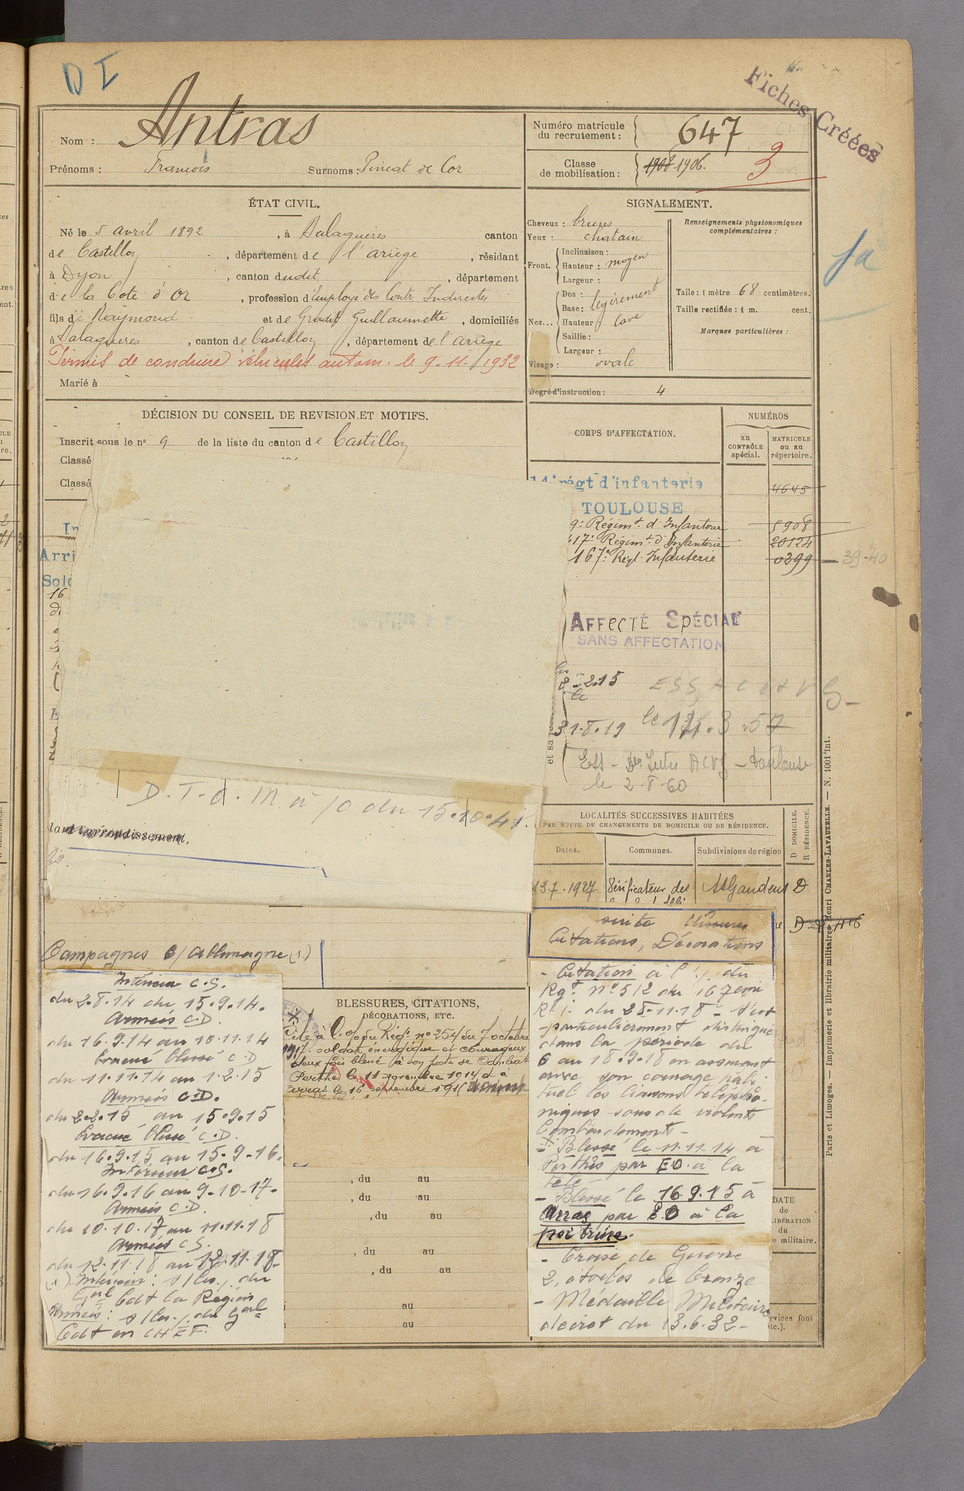 D I
Fiches Créées
Nom : Antras
Prénoms : François Surnoms : Pincat de Cor
Numéro matricule du recrutement : 647
Classe de mobilisation : 1908 1906.
3
ÉTAT CIVIL.
Né le 5 avril 1892, à Salaguères canton
de Castillon, département de l'ariège, résidant
à Dyon, canton dudit, département
de la Cote d'Or, profession d'employé des Contr. Indirectes
fils de Raymond et de Guillaumette, domiciliés
à Salaguères, canton de Castillon, département de l'ariège
Permis de conduire véhicules autom. le 9-11-1932
Marié à
SIGNALEMENT.
Cheveux : bruns
Yeux : chatain
Front. Inclinaison :
Hauteur : moyen
Largeur :
Nez... Dos : légèrement
Base :
Hauteur cave
Saillie :
Largeur :
Visage : ovale
Renseignements physionomiques complémentaires :
Taille : 1 mètre 68 centimètres.
Taille rectifiée : 1 m. cent.
Marques particulières :
Degré d'instruction : 4
DÉCISION DU CONSEIL DE REVISION ET MOTIFS.
Inscrit sous le n° 9 de la liste du canton de Castillon
Classé
Classé
In
Arri
Sold
16
CORPS D'AFFECTATION.
NUMÉROS
AU CONTRÔLE spécial.
MATRICULE ou au répertoire.
14e régt d'infanterie
TOULOUSE
4645
9e Régimt. d'Infanterie 8908
17e Régimt d'Infanterie 20124
167e Régt Infanterie 0399 39-40
AFFECTÉ SPÉCIAL
SANS AFFECTATION
2.15
31.8.19
le 14.3.57
ACVG - Toulouse
le 2-8-60
et sa
D.T.d.M à 10 du 15.10.41.
arrondissement.
LOCALITÉS SUCCESSIVES HABITÉES
PAR SUITE DE CHANGEMENTS DE DOMICILE OU DE RÉSIDENCE.
Dates. Communes. Subdivisions de région
D DOMICILE. R RÉSIDENCE.
13.7.1927 Vérificateur des St Gaudens D
Campagnes c/ Allemagne (1)
Intérieur C.S.
du 2.8.14 au 15.9.14.
Armées C.D.
du 16.9.14 au 10.11.14
Evacué blessé C.D
du 11.11.14 au 1.2.15
Armées C.D.
du 2.2.15 au 15.9.15
Evacué blessé C.D.
du 16.9.15 au 15.9.16.
Intérieur C.S.
du 16.9.16 au 9.10.17.
Armées C.D.
du 10.10.17 au 11.11.18
Armées C.S.
du 12.11.18 au 12.11.18
(1) Intérieur : s/les/. du
Gal Cdt la Région
Armées : s/les/. du Gal
Cdt en CHEF.
BLESSURES, CITATIONS,
DÉCORATIONS, ETC.
Cité à l'O. du Régt. n° 254 du 7 octobre
1917. soldat énergique et courageux
deux fois blessé
Perthes le 11 novembre 1914 et à
arras le 16 septembre 1915
, du au
, du au
, du au
, du au
, du au
au
au
suite blessures
Citations, Décorations
- Citation à l'/. du
Rgt n° 512 du 167ème
R.I. du 25.11.18 - s'est
particulièrement distingué
dans la période du
6 au 18.9.18 en assurant
avec son courage habi-
tuel les liaisons télépho-
niques sous de violent
bombardements -
- Blessé le 11.11.14 à
Perthes par E.O. à la
tête
- Blessé le 16.9.15 à
Arras par E.O à la
poitrine.
- Croix de Guerre
2 étoiles de bronze
- Médaille Militaire
décret du 13.6.32 -
DATE
de
LIBÉRATION
du
service militaire.
Paris et Limoges. — Imprimerie et librairie militaires Henri CHARLES-LAVAUZELLE. — N. 1001 int.